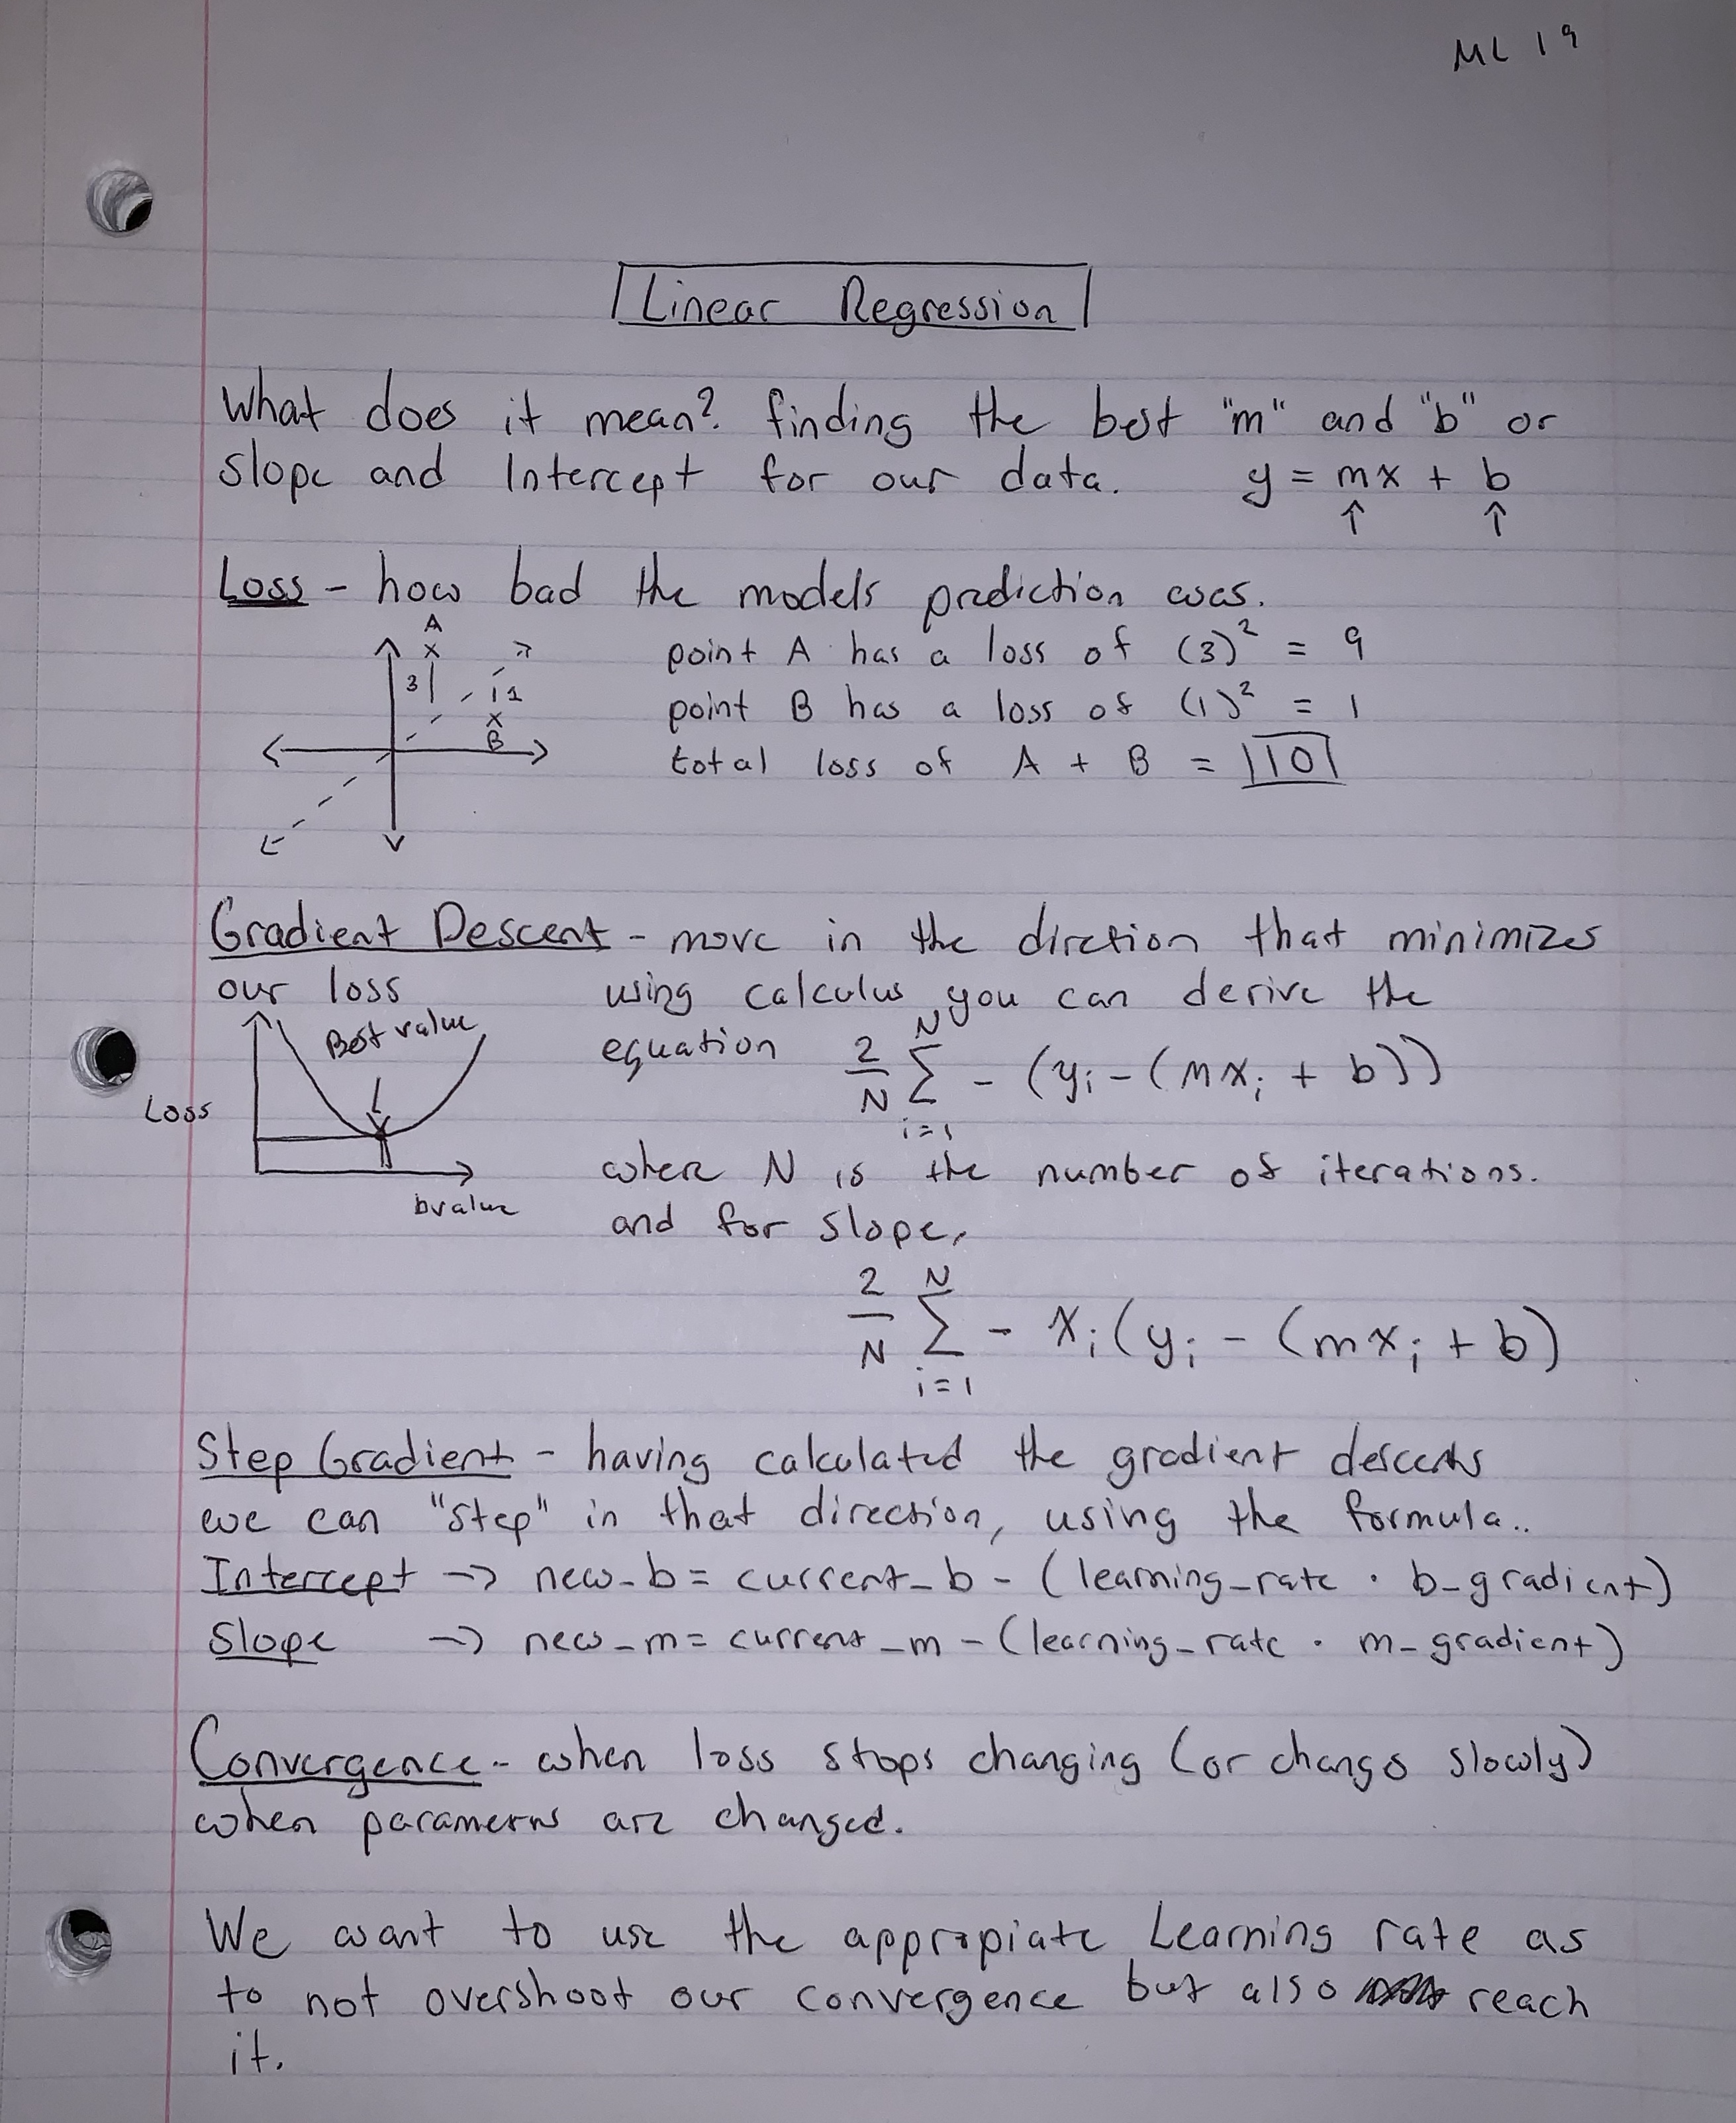 ML 19
Linear Regression
What does it mean? finding the best "m" and "b" or
slope and Intercept for our data. y = mx + b
↑ ↑
Loss - how bad the models prediction was.
A
x
3
1
x
B
point A has a loss of (3)² = 9
point B has a loss of (1)² = 1
total loss of A + B = 10
Gradient Descent - move in the diretion that minimizes
our loss
Best value
Loss
b value
using calculus you can derive the
equation 2/N N∑i=1 - (yi - (mxi + b))
where N is the number of iterations.
and for slope,
2/N N∑i=1 - xi(yi - (mxi + b)
Step Gradient - having calculated the gradient descents
we can "step" in that direction, using the formula..
Intercept → new_b = current_b - (learning_rate · b_gradient)
Slope → new_m = current_m - (learning_rate · m_gradient)
Convergence - when loss stops changing (or changs slowly)
when are changed.
We want to use the appropiate Learning rate as
to not overshoot our convergence but also reach
it.